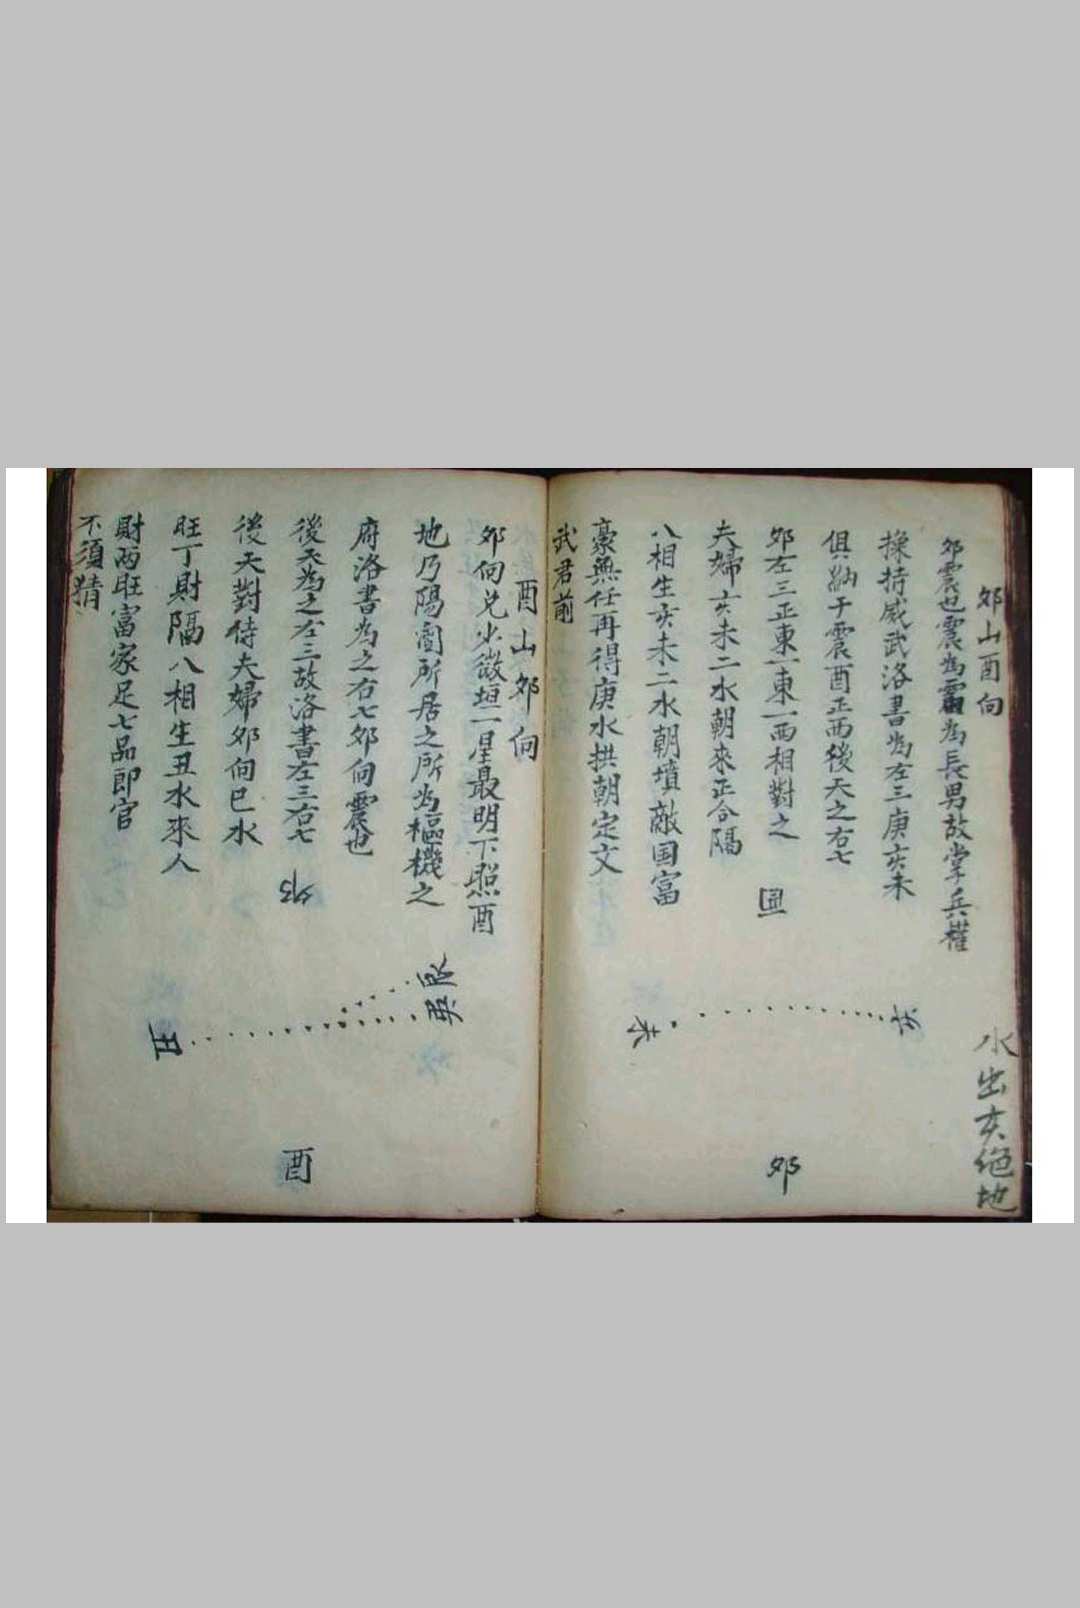 卯山酉向
卯震也震為雷為長男故掌兵權
操持威武洛書為左三庚亥未
俱納于震酉正西後天之右七
卯左三正東一東一西相對之
夫婦亥未二水朝來正合隔
八相生亥未二水朝墳敵国富
豪無任再得庚水拱朝定文
武君前
水出亥绝地
酉
亥
未
卯
酉山卯向
卯向兌少微垣一星最明下照酉
地乃陽閣所居之所為樞機之
府洛書為之右七卯向震也
後天為之左三故洛書左三右七
後天對待夫婦卯向巳水
旺丁財隔八相生丑水來人
財兩旺富家足七品郎官
不須猜
卯
巽
丑
酉